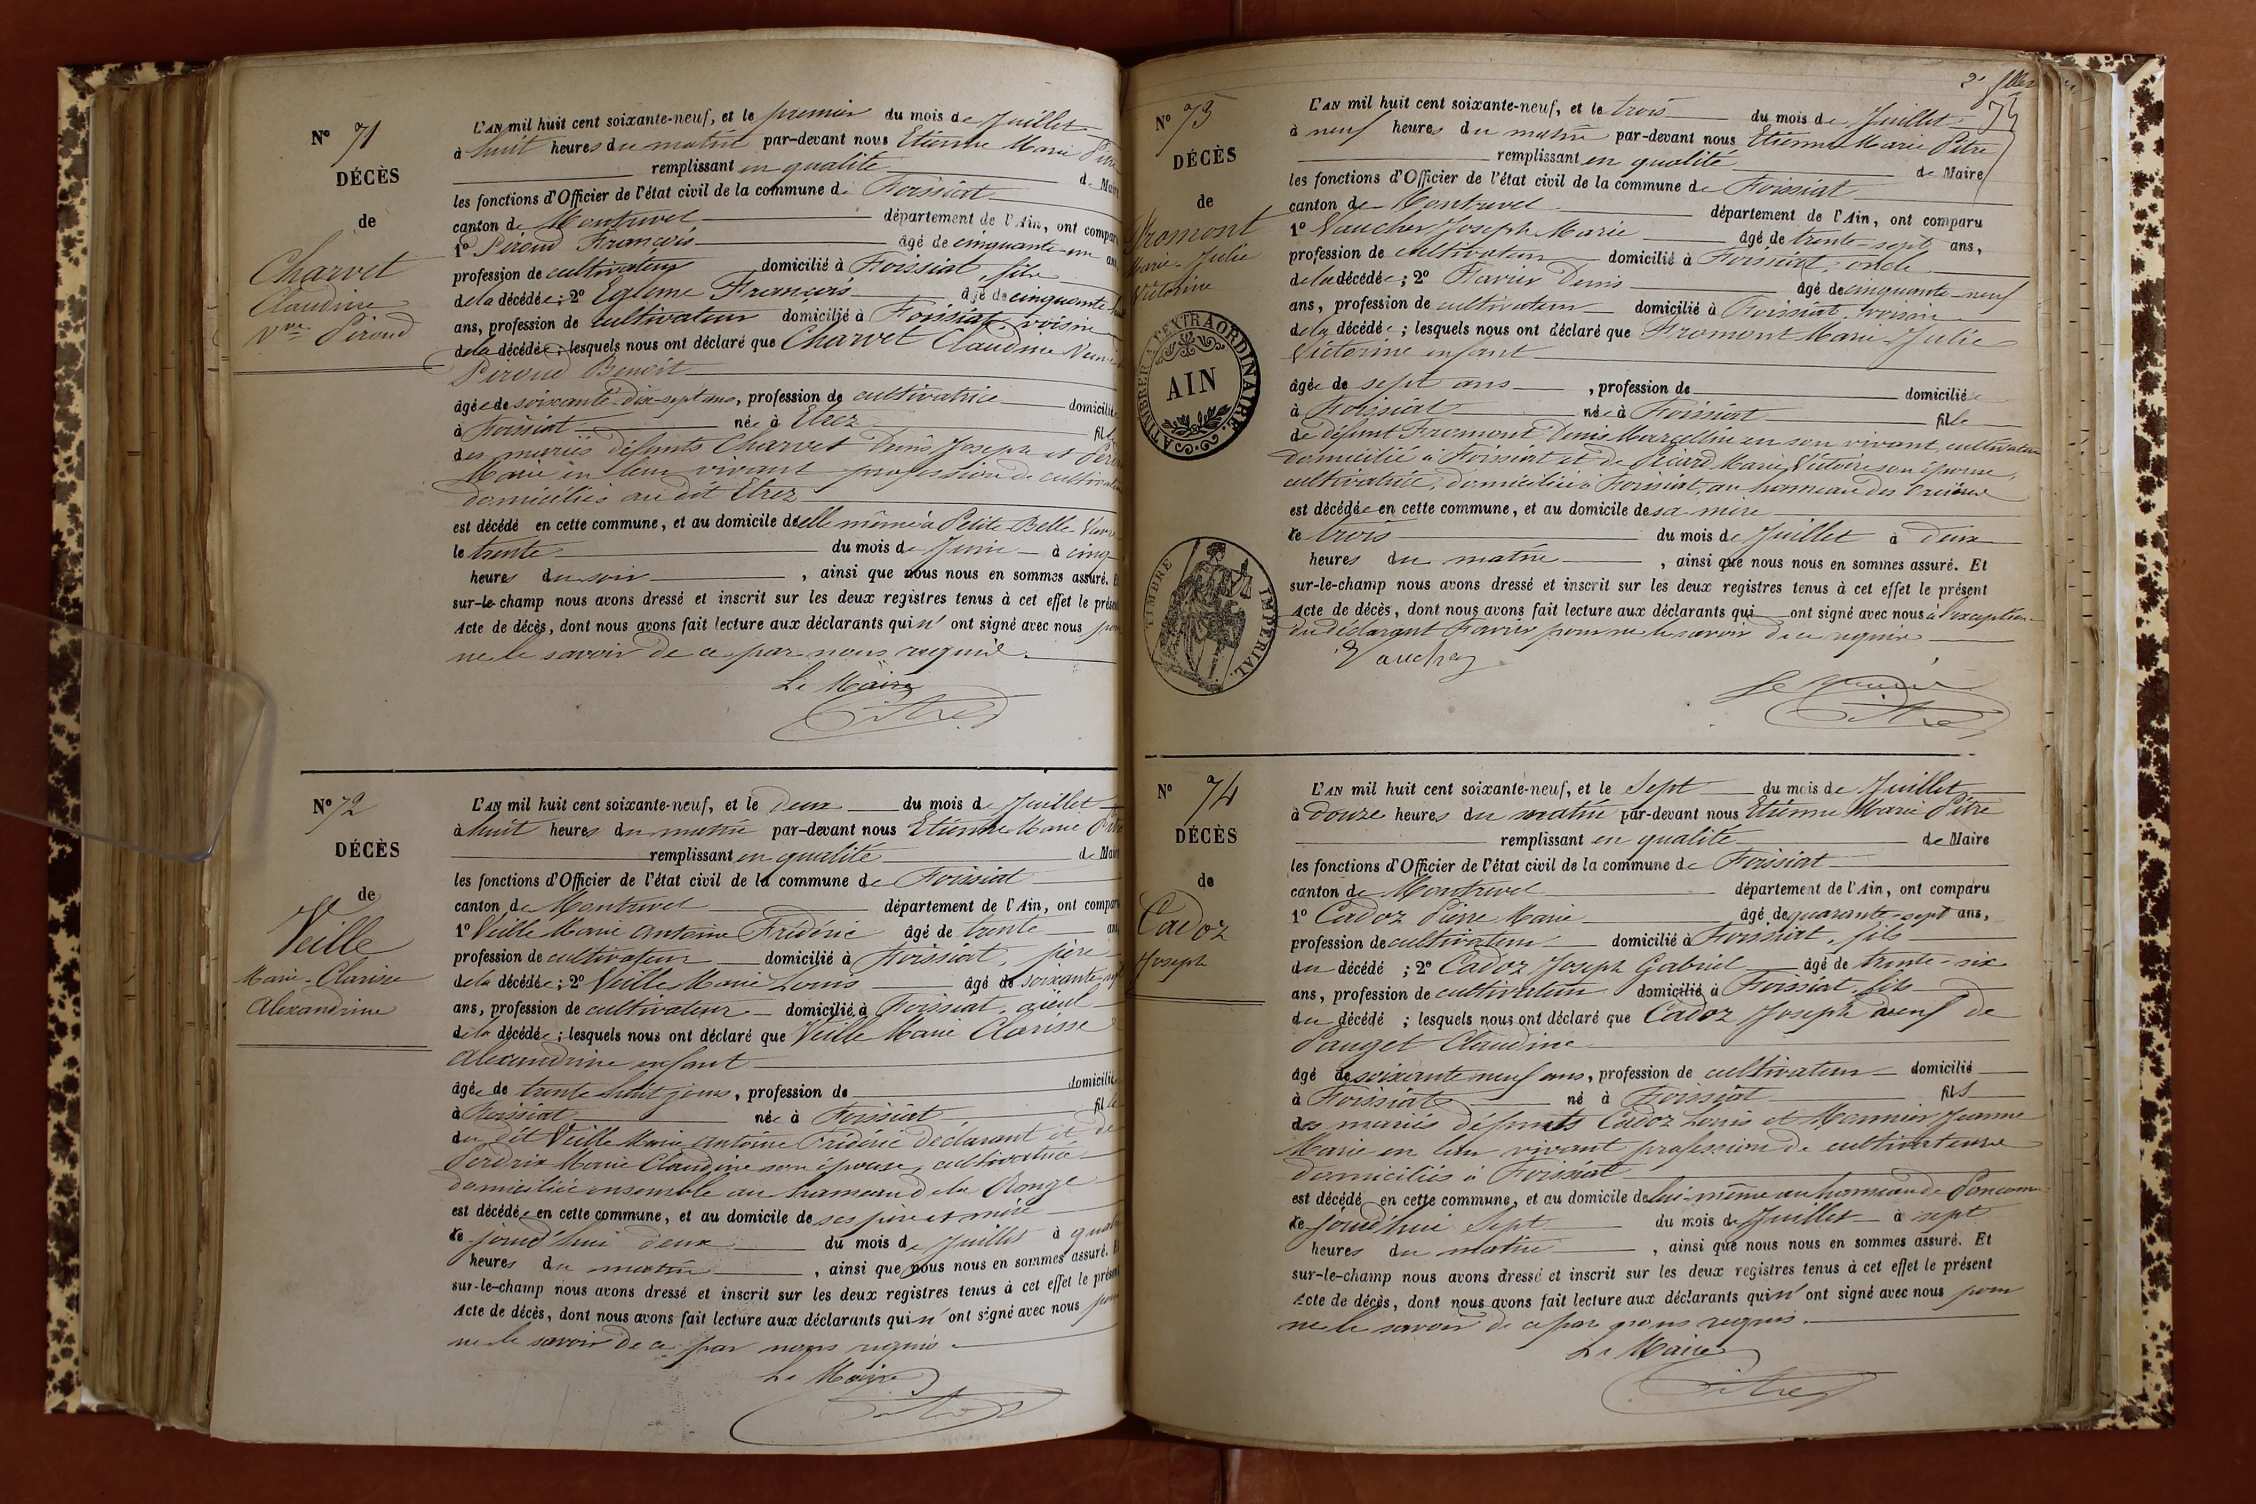 N° 71
DÉCÈS
de
Charvet
Claudine
Vve Péroud
L'AN mil huit cent soixante-neuf, et le premier du mois de Juillet
à huit heures du matin par-devant nous Etienne Marie Pitre
remplissant en qualité de Maire
les fonctions d'Officier de l'état civil de la commune de Foissiat
canton de Montrevel département de l'Ain, ont comparu
1° Péroud François âgé de cinquante-un ans
profession de cultivateur domicilié à Foissiat, fils
de la décédée; 2° Eglème François âgé de cinquante
ans, profession de cultivateur domicilié à Foissiat, voisin
de la décédée; lesquels nous ont déclaré que Charvet Claudine Veuve
Péroud Benoît
âgée de soixante-dix-sept ans, profession de cultivatrice domiciliée
à Foissiat née à Etrez fille
des mariés défunts Charvet Denis Joseph et
Marie en leur vivant profession de cultivateurs
domiciliés au dit Etrez
est décédé en cette commune, et au domicile d'elle même à Petite Belle
le trente du mois de Juin à cinq
heures du soir, ainsi que nous nous en sommes assuré. Et
sur-le-champ nous avons dressé et inscrit sur les deux registres tenus à cet effet le présent
Acte de décès, dont nous avons fait lecture aux déclarants qui n'ont signé avec nous pour
ne le savoir de ce par nous requis.
Le Maire
Pitre
N° 72
DÉCÈS
de
Veille
Marie-Clarisse
Alexandrine
L'AN mil huit cent soixante-neuf, et le deux du mois de Juillet
à huit heures du matin par-devant nous Etienne Marie Pitre
remplissant en qualité de Maire
les fonctions d'Officier de l'état civil de la commune de Foissiat
canton de Montrevel département de l'Ain, ont comparu
1° Veille Marie Antoine Frédéric âgé de trente ans
profession de cultivateur domicilié à Foissiat, père
de la décédée; 2° Veille Marie Louis âgé de soixante-sept
ans, profession de cultivateur domicilié à Foissiat, aïeul
de la décédée; lesquels nous ont déclaré que Veille Marie Clarisse
Alexandrine enfant
âgée de trente huit jours, profession de domiciliée
à Foissiat née à Foissiat fille
du dit Veille Marie Antoine Frédéric déclarant et de
Perdrix Marie Claudine son épouse, cultivatrice
domiciliés ensemble au hameau de la Ronge
est décédée en cette commune, et au domicile de ses père et mère
le jourd'hui deux du mois de Juillet à quatre
heures du matin, ainsi que nous nous en sommes assuré. Et
sur-le-champ nous avons dressé et inscrit sur les deux registres tenus à cet effet le présent
Acte de décès, dont nous avons fait lecture aux déclarants qui n'ont signé avec nous pour
ne le savoir de ce par nous requis.
Le Maire
Pitre
73
N° 73
DÉCÈS
de
Fromont
Marie-Julie
Victorine
A TIMBRER A L'EXTRAORDINAIRE.
AIN
TIMBRE IMPERIAL.
L'AN mil huit cent soixante-neuf, et le trois du mois de Juillet
à neuf heures du matin par-devant nous Etienne Marie Pitre
remplissant en qualité de Maire
les fonctions d'Officier de l'état civil de la commune de Foissiat
canton de Montrevel département de l'Ain, ont comparu
1° Vaucher Joseph Marie âgé de trente-sept ans,
profession de cultivateur domicilié à Foissiat, oncle
de la décédée; 2° Favier Denis âgé de cinquante-neuf
ans, profession de cultivateur domicilié à Foissiat, voisin
de la décédée; lesquels nous ont déclaré que Fromont Marie-Julie
Victorine enfant
âgée de sept ans, profession de domiciliée
à Foissiat née à Foissiat fille
de défunt Fromont Denis Marcellin en son vivant cultivateur
domicilié à Foissiat et de Picard Marie Victoire son épouse,
cultivatrice, domiciliée à Foissiat, au hameau des
est décédée en cette commune, et au domicile de sa mère
le trois du mois de Juillet à deux
heures du matin, ainsi que nous nous en sommes assuré. Et
sur-le-champ nous avons dressé et inscrit sur les deux registres tenus à cet effet le présent
Acte de décès, dont nous avons fait lecture aux déclarants qui ont signé avec nous à l'exception
du déclarant Favier pour ne le savoir de ce requis
Vaucher
Le Maire
Pitre
N° 74
DÉCÈS
de
Cadoz
Joseph
L'AN mil huit cent soixante-neuf, et le Sept du mois de Juillet
à douze heures du matin par-devant nous Etienne Marie Pitre
remplissant en qualité de Maire
les fonctions d'Officier de l'état civil de la commune de Foissiat
canton de Montrevel département de l'Ain, ont comparu
1° Cadoz Pierre Marie âgé de quarante-sept ans,
profession de cultivateur domicilié à Foissiat, fils
du décédé; 2° Cadoz Joseph Gabriel âgé de trente-six
ans, profession de cultivateur domicilié à Foissiat, fils
du décédé; lesquels nous ont déclaré que Cadoz Joseph veuf de
Pauget Claudine
âgé de soixante neuf ans, profession de cultivateur domicilié
à Foissiat né à Foissiat fils
des mariés défunts Cadoz Louis et Monnier Jeanne
Marie en leur vivant profession de cultivateurs
domiciliés à Foissiat
est décédé en cette commune, et au domicile de lui-même au hameau de
le jourd'hui Sept du mois de Juillet à sept
heures du matin, ainsi que nous nous en sommes assuré. Et
sur-le-champ nous avons dressé et inscrit sur les deux registres tenus à cet effet le présent
Acte de décès, dont nous avons fait lecture aux déclarants qui n'ont signé avec nous pour
ne le savoir de ce par nous requis.
Le Maire
Pitre